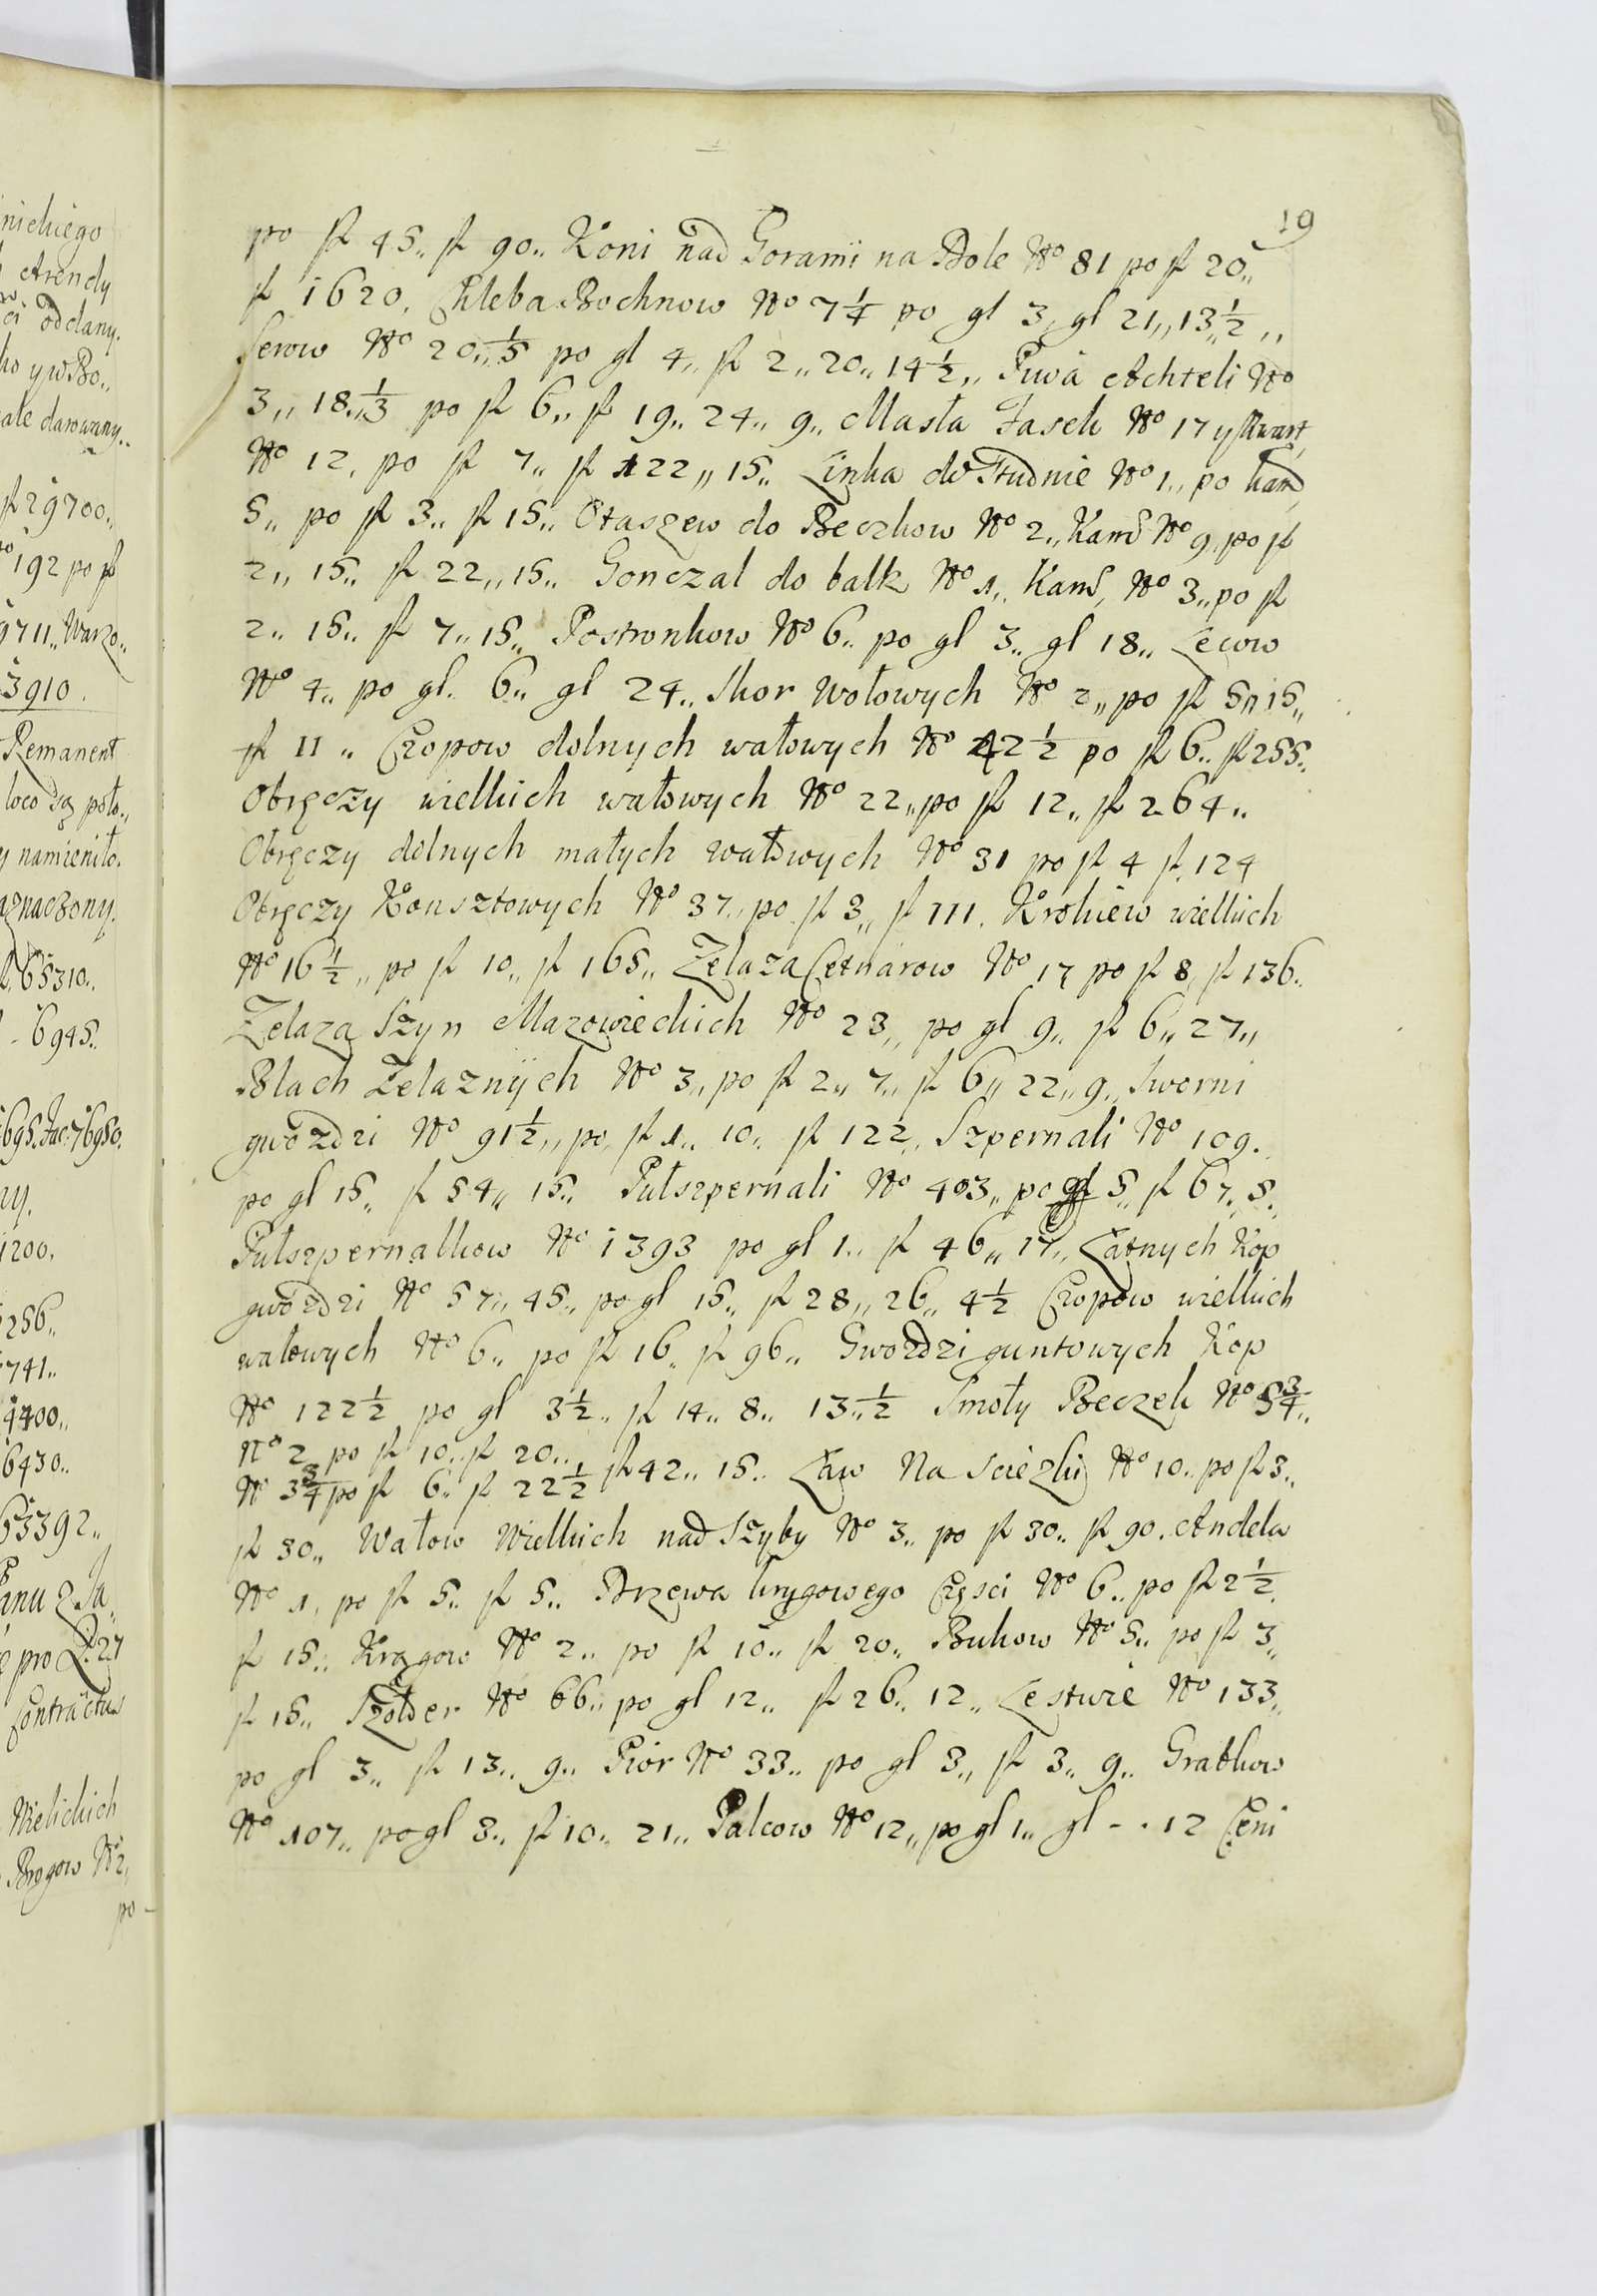 19
po fl 45„ fl 90„ Koni nad Gorami na Dole No 81 po fl 20„
fl 1620. Chleba Bochnow No 7 1/4 po gl 3„ gl 21„ 13 1/2„
Serow No 20„ 1/5 po gl 4„ fl 2„ 20„ 14 1/2„ Piwa Achteli No
3„ 18„ 1/3 po fl 6„ fl 19„ 24„ 9„ Masła Fasek No 17 y kwart
No 12. po fl 7„ fl 122„ 15„ Linka do Studnie No 1„ po kam
5„ po fl 3„ fl 15„ Otaszew do Beczkow No 2„ Kam No 9„ po fl
2„ 15„ fl 22„ 15„ Gonczal do balk No 1„ Kam, No 3„ po fl
2„ 15„ fl 7„ 15„ Postronkow No 6„ po gl 3„ gl 18„ Lecow
No 4„ po gl. 6„ gl 24„ Skor wołowych No 2„ po fl 5„ 15„
fl 11„ Czopow dolnych wałowych No 42 1/2 po fl 6„ fl 255„
Obręczy wielkich wałowych No 22„ po fl 12„ fl 264„
Obręczy dolnych małych wałowych No 31 po fl 4 fl 124
Obręczy Konsztowych No 37„ po fl 3„ fl 111. Krokiew wielkich
No 16 1/2„ po fl 10„ fl 165„ Zelaza Cetnarow No 17 po fl 8„ fl 136„
Zelaza Szyn Mazowieckich No 23„ po gl 9„ fl 6„ 27„
Blach Zelaznych No 3„ po fl 2„ 7„ fl 6„ 22„ 9„ Sworni
gwozdzi No 91 1/2„ po fl 1„ 10„ fl 122„ Szpernali No 109.
po gl 15„ fl 54„ 15„ Pułszpernali No 403„ po gl 5„ fl 67„ 5„
Pułszpernalkow No 1393 po gl 1„ fl 46„ 17„ Łatnych Kop
gwozdzi No 57„ 45„ po gl 15„ fl 28„ 26„ 4 1/2 Czopow wielkich
wałowych No 6„ po fl 16„ fl 96„ Gwozdzi guntowych Kop
No 122 1/2 po gl 3 1/2„ fl 14„ 8„ 13„ 1/2 Smoły Beczek No 5 3/4„
No 2 po fl 10„ fl 20„
No 3 3/4 po fl 6„ fl 22 1/2 fl 42„ 15„ Ław Na sciezki No 10„ po fl 3„
fl 30„ Wałow Wielkich nad Szyby No 3„ po fl 30„ fl 90. Andela
No 1, po fl 5„ fl 5„ Drzewa krygowego Części No 6„ po fl 2 1/2
fl 15„ Kręgow No 2„ po fl 10„ fl 20„ Bukow No 5„ po fl 3„
fl 15„ Szołder No 66„ po gl 12„ fl 26„ 12„ Lestwie No 133„
po gl 3„ fl 13„ 9„ Piór No 33„ po gl 3„ fl 3„ 9„ Grabkow
No 107„ po gl 3„ fl 10„ 21„ Palcow No 12„ po gl 1„ gl - . 12 Ceni